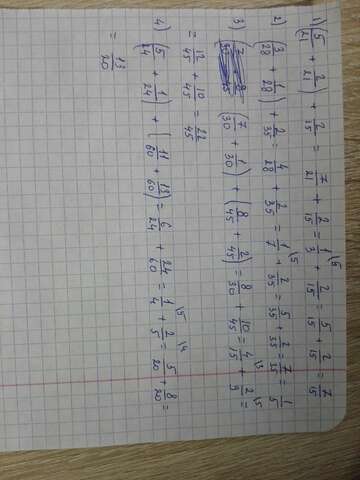 1) (5/21 + 2/21) + 2/15 = 7/21 + 2/15 = 1/3 \5 + 2/15 = 5/15 + 2/15 = 7/15
2) (3/28 + 1/28) + 2/35 = 4/28 + 2/35 = 1/7 \5 + 2/35 = 5/35 + 2/35 = 7/35 = 1/5
3) (7/30 + 1/30) + (8/45 + 2/45) = 8/30 + 10/45 = 4/15 \3 + 2/9 \5 =
= 12/45 + 10/45 = 22/45
4) (5/24 + 1/24) + (11/60 + 13/60) = 6/24 + 24/60 = 1/4 \5 + 2/5 \4 = 5/20 + 8/20 =
= 13/20